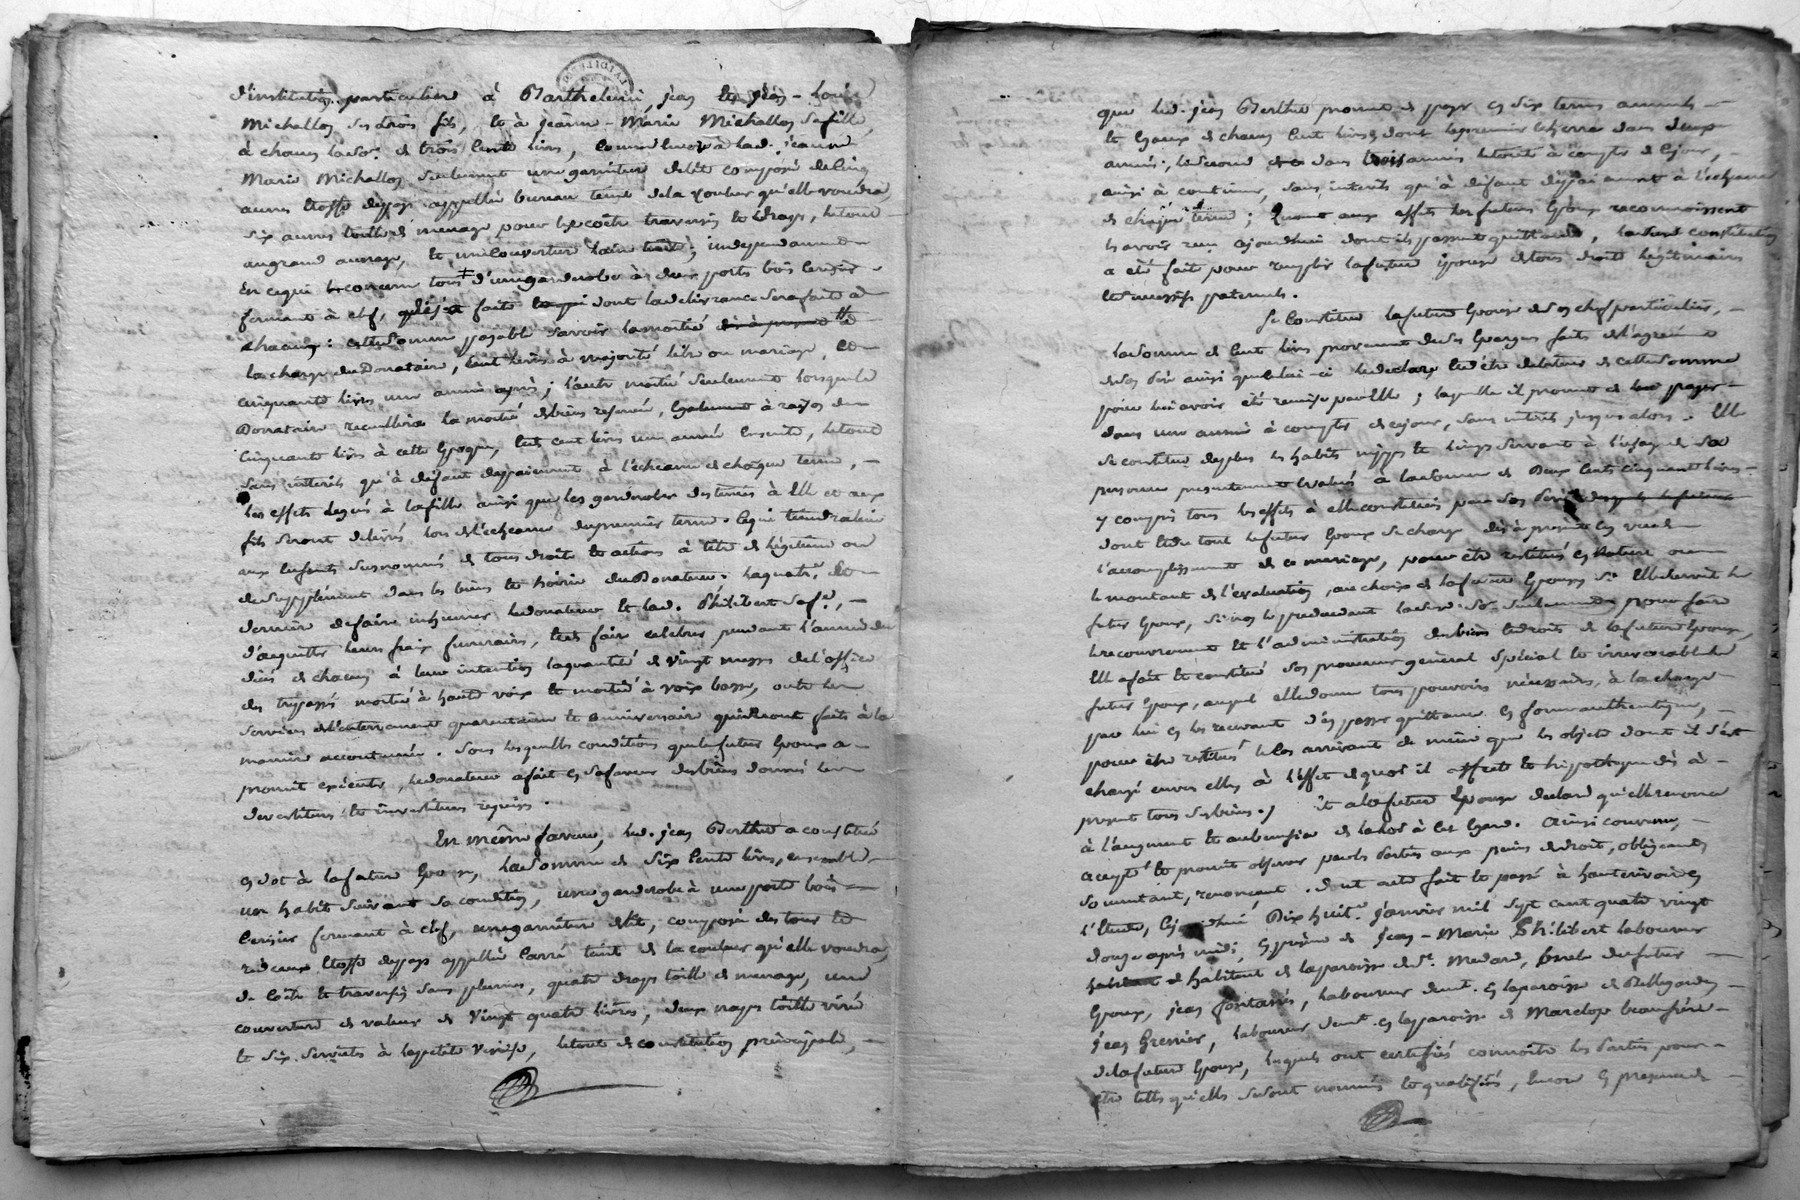 d'institution particuliere à Barthelemi, jean et jean-Louis
Michallon ses trois fils, et à jeanne-Marie Michallon sa fille,
à chacun la so.e de trois cents livres, comme encore à lad. jeanne
Marie Michallon seulement une garniture de lit composé de cinq
aunes étoffe du pays appellée bureau teint de la couleur qu'elle voudra,
six aunes toille de menage pour le coëtre traversin et draps, le tout
au grand aunage, et une couverture laine ; independament
en ce qui concerne tous d'une garderobe à deux ports bois cerisier
fermant à clef, faite dont la delivrance sera faite à
chacun : cette somme payable savoir la moitié
la charge du Donataire, cent livres à majorité libre ou mariage, et
cinquante livres une année après ; l'autre moitié seulement lorsque le
Donataire recueillira la moitié des biens reservée, également à raison de
cinquante livres à cette époque, et cent livres une année ensuite, le tout
sans interets qu'à défaut de paiement à l'echeance de chaque terme,
les effets legués à la fille ainsi que les garderobes destinées à elle et aux
fils seront delivrés lors de l'echeance du premier terme. ce qui tiendra lieu
aux enfants susnommés de tous droits et actions à titre de légitime ou
de supplement dans les biens et hoirie du Donateur. la quatr.e et
derniere de faire inhumer le donateur et lad. Philibert sa f.e,
d'acquitter leurs frais funeraires, et faire celebrer pendant l'année du
décès de chacun à leur intention la quantité de vingt messes de l'office
des trepassés moitié à haute voix et moitié à voix basse, outre les
services d'enterrement quarantaine et anniversaire qui seront faits à la
maniere accoutumée. Sous lesquelles conditions que le futur époux a
promit exécuter, le donateur a fait en sa faveur des biens donnés les
devestiture et investiture requises.
En même faveur, led. jean Berthet a constitué
en dot à la future épouse, la somme de six cents livres, ensemble
un habit suivant sa condition, une garderobe à une porte bois
cerisier fermant à clef, une garniture de lit, composée des tour et
rideaux étoffe du pays appellée carré teint de la couleur qu'elle voudra,
de coëtre et traversin sans plumes, quatre draps toille de menage, une
couverture de valeur de vingt quatre livres, deux napes toille
et six serviettes à la petite Venise, le tout de constitution principale,
que led. jean Berthet promet de payer en six termes annuels
et égaux de chacun cent livres dont le premier écherra dans deux
années ; le second dans trois années le tout à compter de ce jour,
ainsi à continuer, sans interets qu'à défaut de paiement à l'echeance
de chaque terme ; Quant aux effets les futurs époux reconnoissent
les avoir reçu ajourdhui dont ils passent quittance, lad. constitution
a été fait pour remplir la future épouse de tous droits légitimaires
et successifs paternels.
Se Constitue la future épouse de son chef particulier,
la somme de cent livres provenant de ses épargnes faits de l'agrément
de son pere ainsi que celui-ci le declare et d'être debiteur de cette somme
pour lui avoir été remise par elle ; laquelle il promet de payer
dans une année à compter de ce jour, sans interets jusques alors. Elle
se constitue de plus les habits nippes et linges servant à l'usage de sa
personne presentement évalués à la somme de Deux Cents cinquante livres
y compris tous les effets à elle constitués par son pere
dont et du tout le futur époux se charge dès à present en vue de
l'accomplissement de ce mariage, pour être restitués en Nature ou
le montant de l'evaluation, au choix de la future épouse si elle survit le
futur époux, sinon le predecedant seulement pour faire
le recouvrement et l'administration des biens et droits de la future épouse,
Elle a fait et constitué son procureur général spécial et irrevocable le
futur époux, auquel elle donne tous pouvoirs nécessaires, à la charge
par lui en les recevant d'en passer quittance en forme authentique,
pour être restitués le cas arrivant de même que les objets dont il s'est
chargé envers elle, à l'effet de quoi il affecte et hipothèque dès à
present tous ses biens. et a la future épouse declaré qu'elle renonce
à l'augment et au benefice de la loi à cet égard. Ainsi convenu,
accepté et promit observer par les Parties aux peines de droit, obligeant
soumettant, renonçant. dont acte fait et passé à hauterivoire en
l'étude, cejourdhui Dix huit.e janvier mil sept cent quatre vingt
douze après midi, en présence de Jean-Marie Philibert laboureur
habitant de la paroisse de S.t Medard, oncle du futur
époux, jean fontanès, laboureur demt. en la paroisse de Bellegarde,
jean Grenier, laboureur demt. en la paroisse de Marclop beaufrère
de la future épouse, lesquels ont certifiés connoitre les Parties pour
être telles qu'elles se sont nommées et qualifiées, encore en presence de